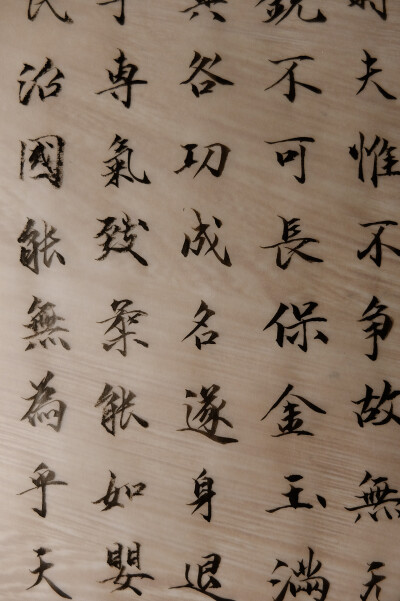 夫惟不争故無尤
銳不可長保金玉滿
其咎功成名遂身退
乎專氣致柔能如嬰
民治國能無為乎天